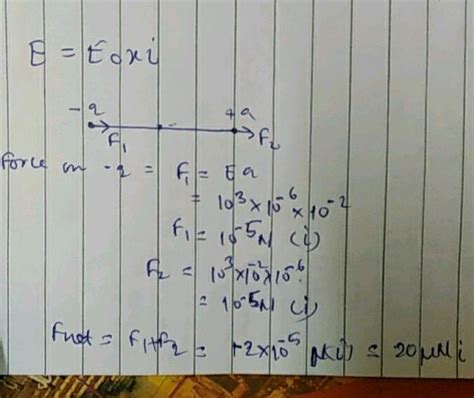 E = E₀xi
-q +q
F₁ F₂
Force on -q = F₁ = Eq
= 10³×10⁻⁶×10⁻²
F₁ = 10⁻⁵N (i)
F₂ = 10³×10⁻²×10⁻⁶
= 10⁻⁵N (i)
Fnet = F₁+F₂ = +2×10⁻⁵N(i) = 20μN i